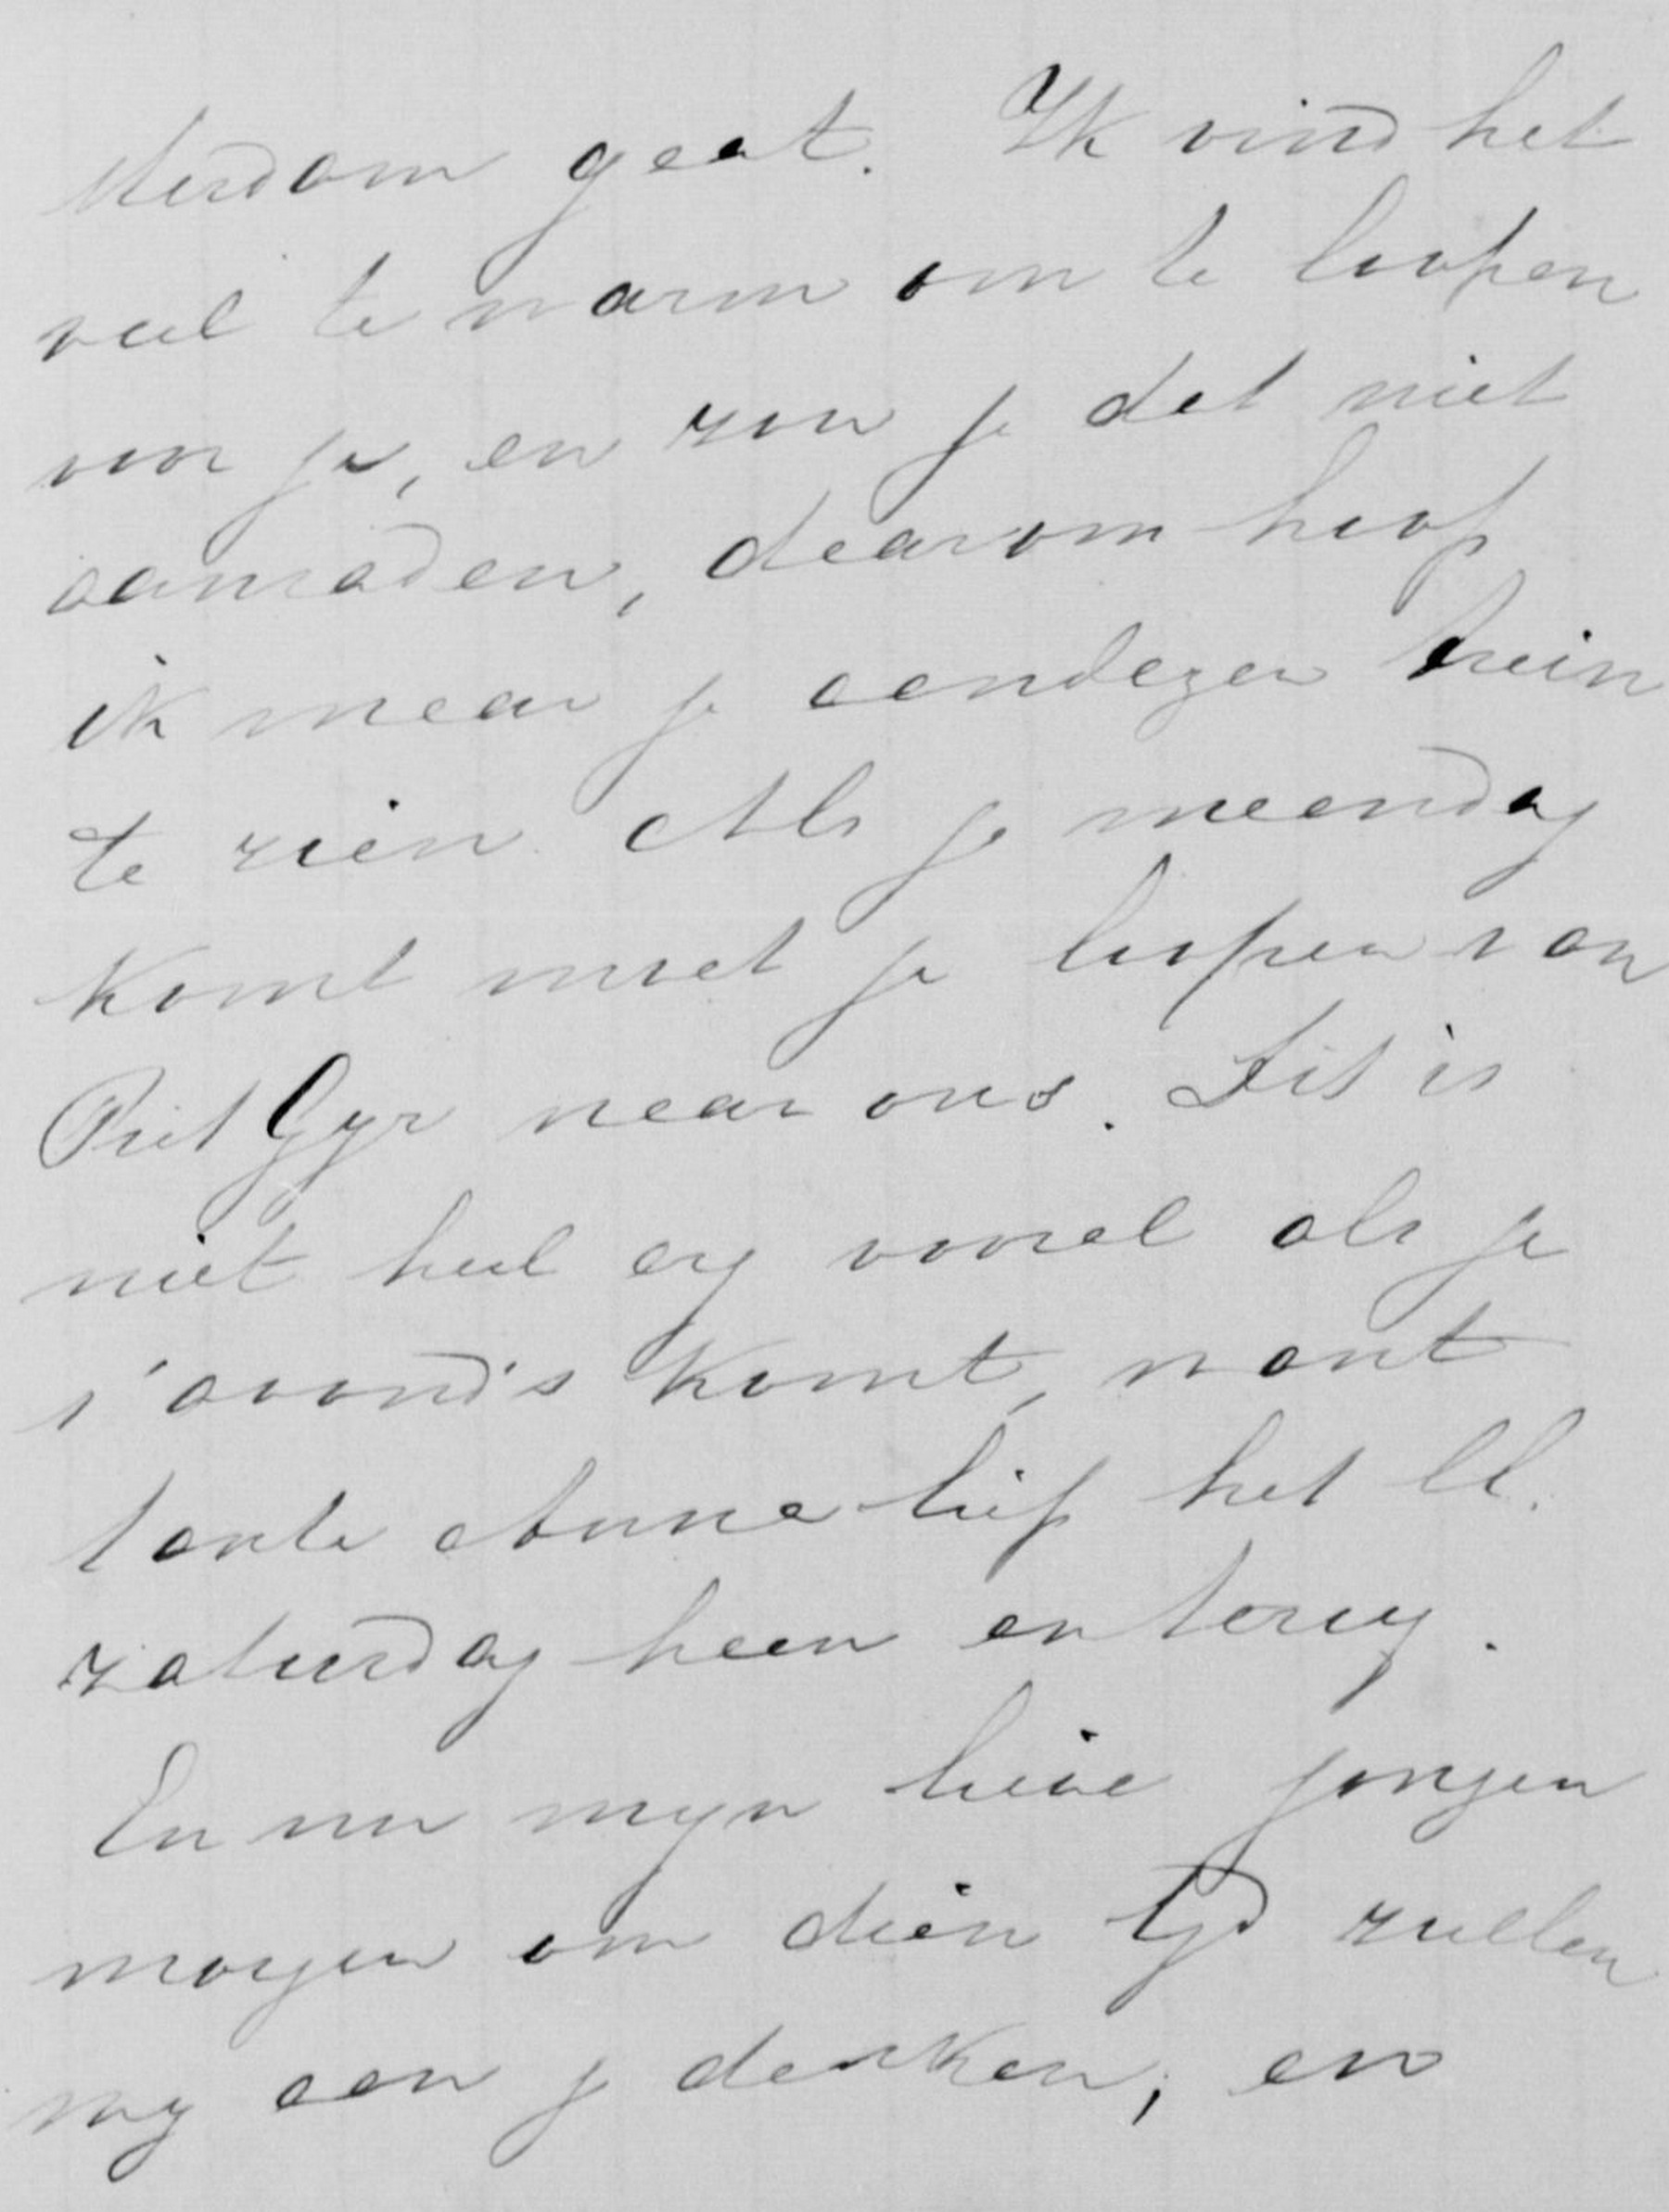 sterdam gaat. Ik vind het
veel te warm om te loopen
voor je, en zou je dat niet
aanraden, daarom hoop
ik maar je aandezen trein
te zien. Als je maandag
komt moet je loopen van
Piet Gijz naar ons. Dit is
niet heel erg vooral als je
s'avond's komt, want
tante Anna liep het ll.
zaturdag heen en terug.
En nu mijn lieve jongen
morgen om dien tijd zullen
wij aan je denken, en